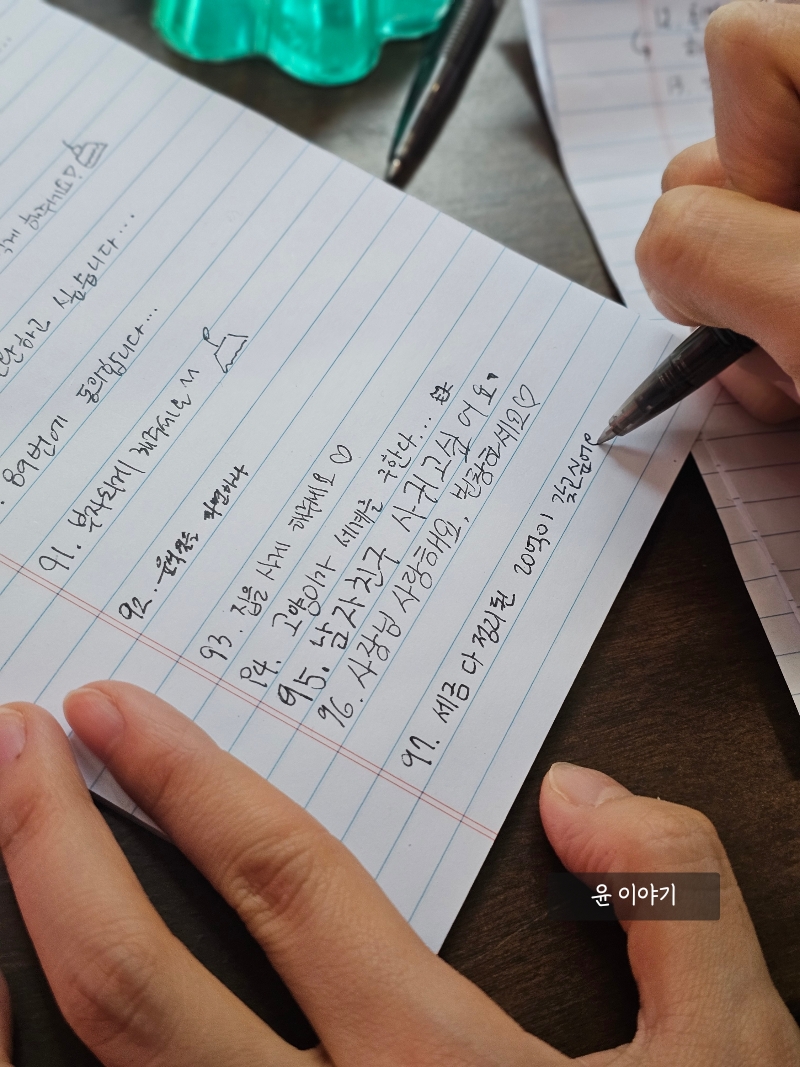 해주세요♡
하고 싶습니다...
89번에 동의합니다...
91. 부자되게 해주세요^^
92.
93. 집을 사게 해주세요♡
94. 고양이가 세계를 구한다...
95. 남자친구 사귀고 싶어요.
96. 사장님 사랑해요, 번창하세요♡
97. 세금 다 정리된 20억이 갖고싶어
12.
13.
윤 이야기